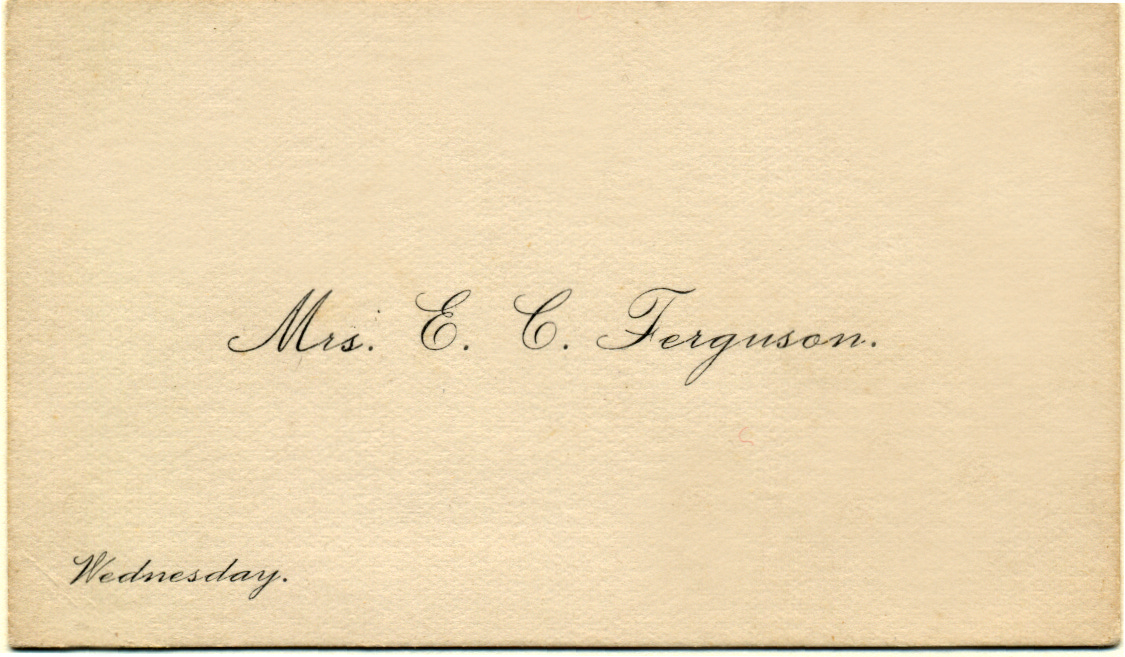 Mrs. E. C. Ferguson.
Wednesday.